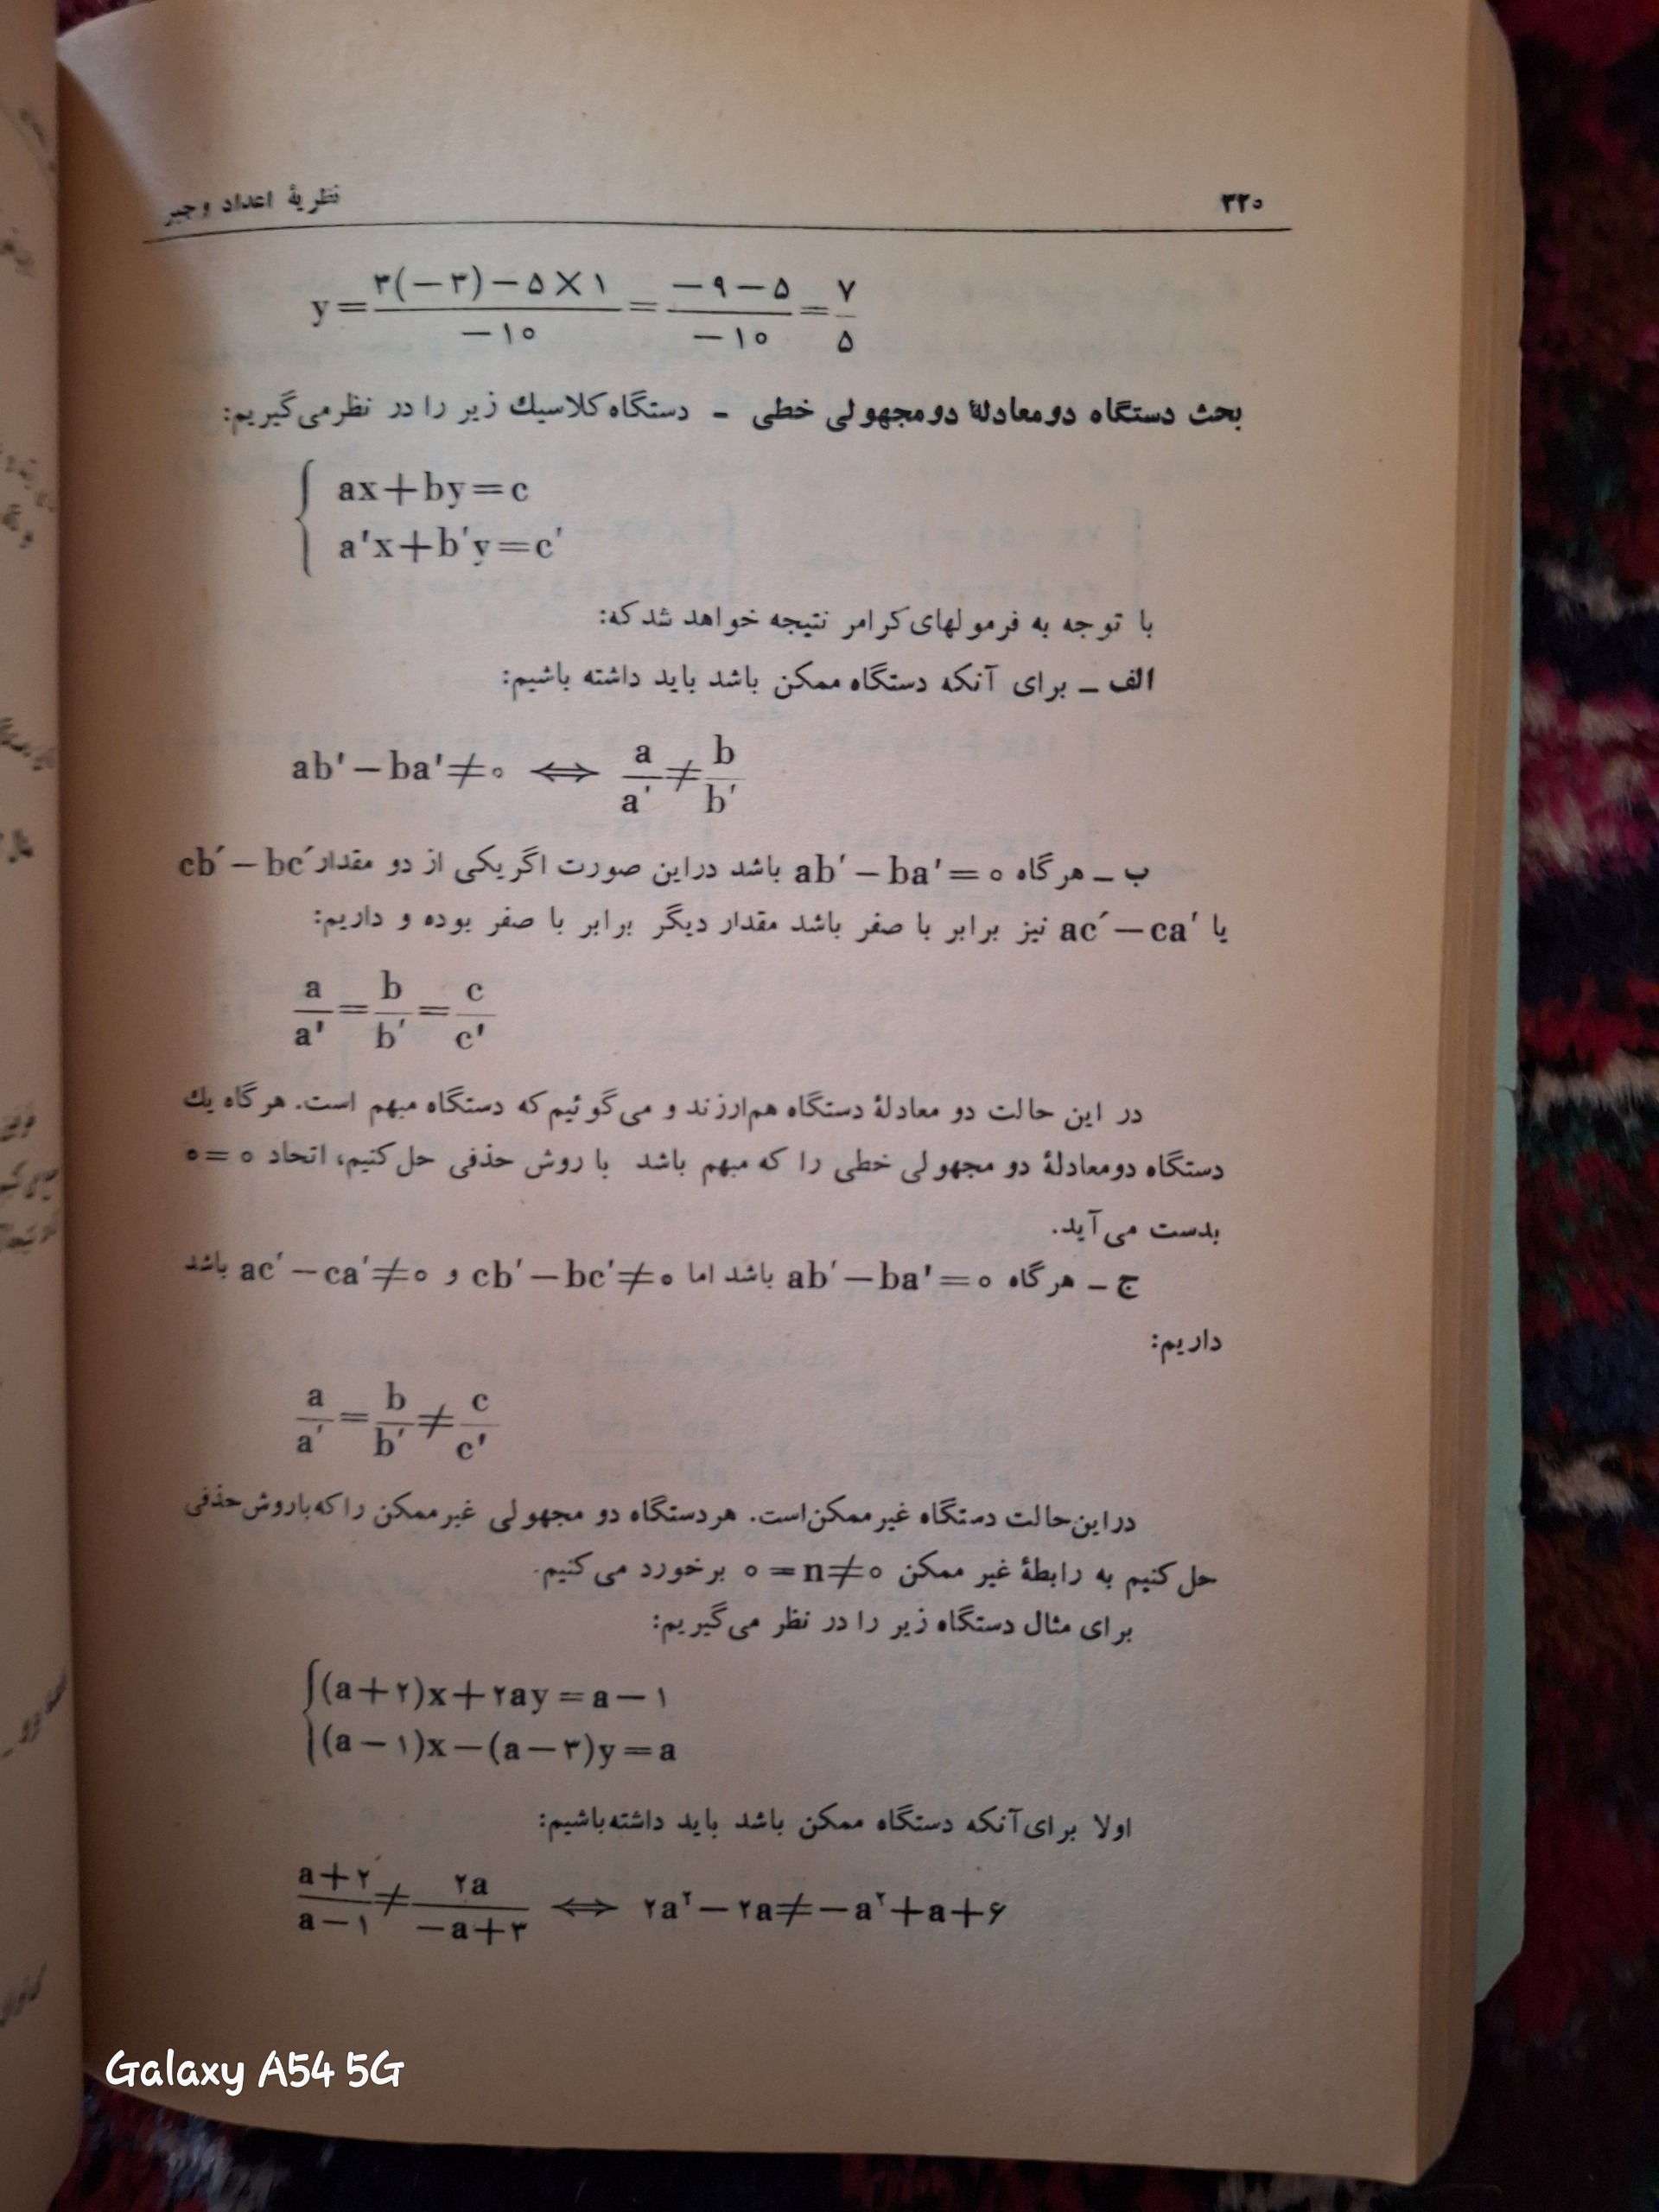 ۳۲۰
نظریهٔ اعداد وجبر
y=۳(−۳)−۵×۱/−۱۰=−۹−۵/−۱۰=۷/۵
بحث دستگاه دومعادلهٔ دومجهولی خطی – دستگاه کلاسیک زیر را در نظر می‌گیریم:
ax+by=c
a'x+b'y=c'
با توجه به فرمولهای کرامر نتیجه خواهد شد که:
الف – برای آنکه دستگاه ممکن باشد باید داشته باشیم:
ab'−ba'≠۰ ⟺ a/a'≠b/b'
ب – هرگاه ab'−ba'=۰ باشد دراین صورت اگر یکی از دو مقدار cb'−bc'
یا ac'−ca' نیز برابر با صفر باشد مقدار دیگر برابر با صفر بوده و داریم:
a/a'=b/b'=c/c'
در این حالت دو معادلهٔ دستگاه هم‌ارزند و می‌گوئیم که دستگاه مبهم است. هرگاه یک
دستگاه دومعادلهٔ دو مجهولی خطی را که مبهم باشد با روش حذفی حل کنیم، اتحاد ۰=۰
بدست می‌آید.
ج – هرگاه ab'−ba'=۰ باشد اما cb'−bc'≠۰ و ac'−ca'≠۰ باشد
داریم:
a/a'=b/b'≠c/c'
دراین‌حالت دستگاه غیرممکن‌است. هردستگاه دو مجهولی غیرممکن را که باروش حذفی
حل کنیم به رابطهٔ غیر ممکن ۰=n≠۰ برخورد می‌کنیم.
برای مثال دستگاه زیر را در نظر می‌گیریم:
(a+۲)x+۲ay=a−۱
(a−۱)x−(a−۳)y=a
اولا برای‌آنکه دستگاه ممکن باشد باید داشته‌باشیم:
a+۲/a−۱≠۲a/−a+۳ ⟺ ۲a²−۲a≠−a²+a+۶
Galaxy A54 5G